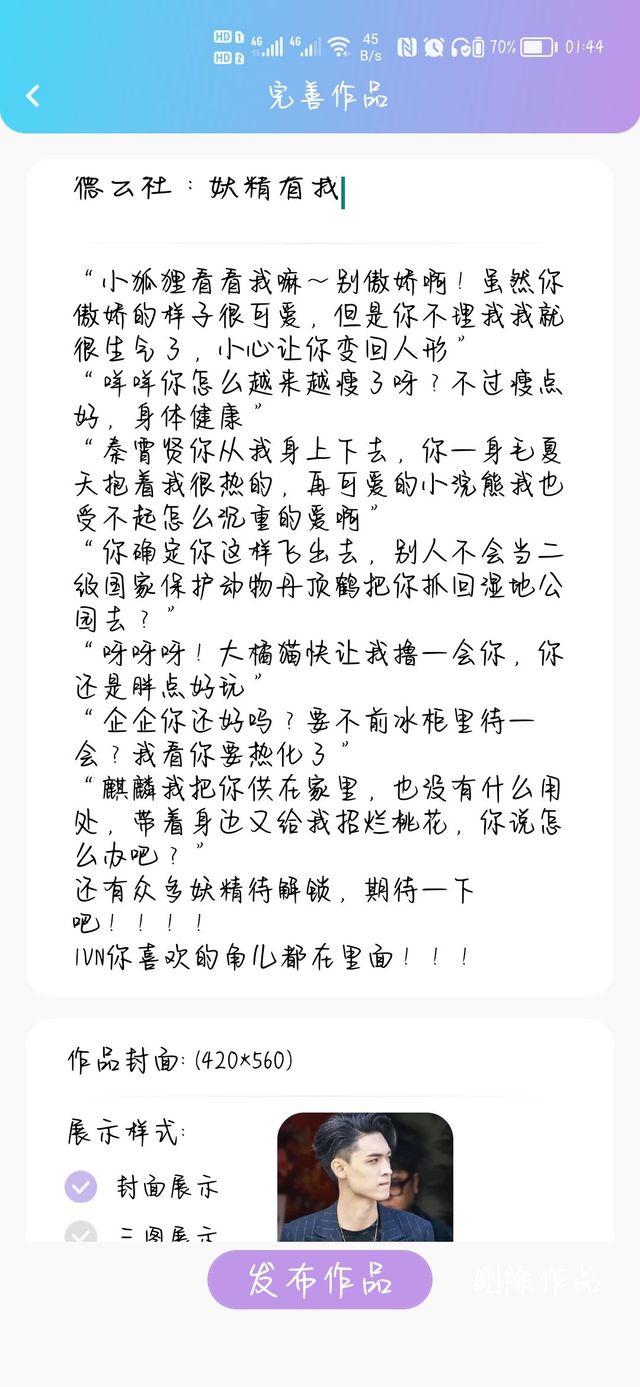 HD 1 4G 4G 45 70% 01:44
HD 2 B/s
完善作品
德云社：妖精有我
“小狐狸看看我嘛～别傲娇啊！虽然你
傲娇的样子很可爱，但是你不理我我就
很生气了，小心让你变回人形”
“咩咩你怎么越来越瘦了呀？不过瘦点
好，身体健康”
“秦霄贤你从我身上下去，你一身毛夏
天抱着我很热的，再可爱的小浣熊我也
受不起怎么沉重的爱啊”
“你确定你这样飞出去，别人不会当二
级国家保护动物丹顶鹤把你抓回湿地公
园去？”
“呀呀呀！大橘猫快让我撸一会你，你
还是胖点好玩”
“企企你还好吗？要不前冰柜里待一
会？我看你要热化了”
“麒麟我把你供在家里，也没有什么用
处，带着身边又给我招烂桃花，你说怎
么办吧？”
还有众多妖精待解锁，期待一下
吧！！！！
1VN你喜欢的角儿都在里面！！！
作品封面:(420*560)
展示样式:
封面展示
三图展示
发布作品
删除作品